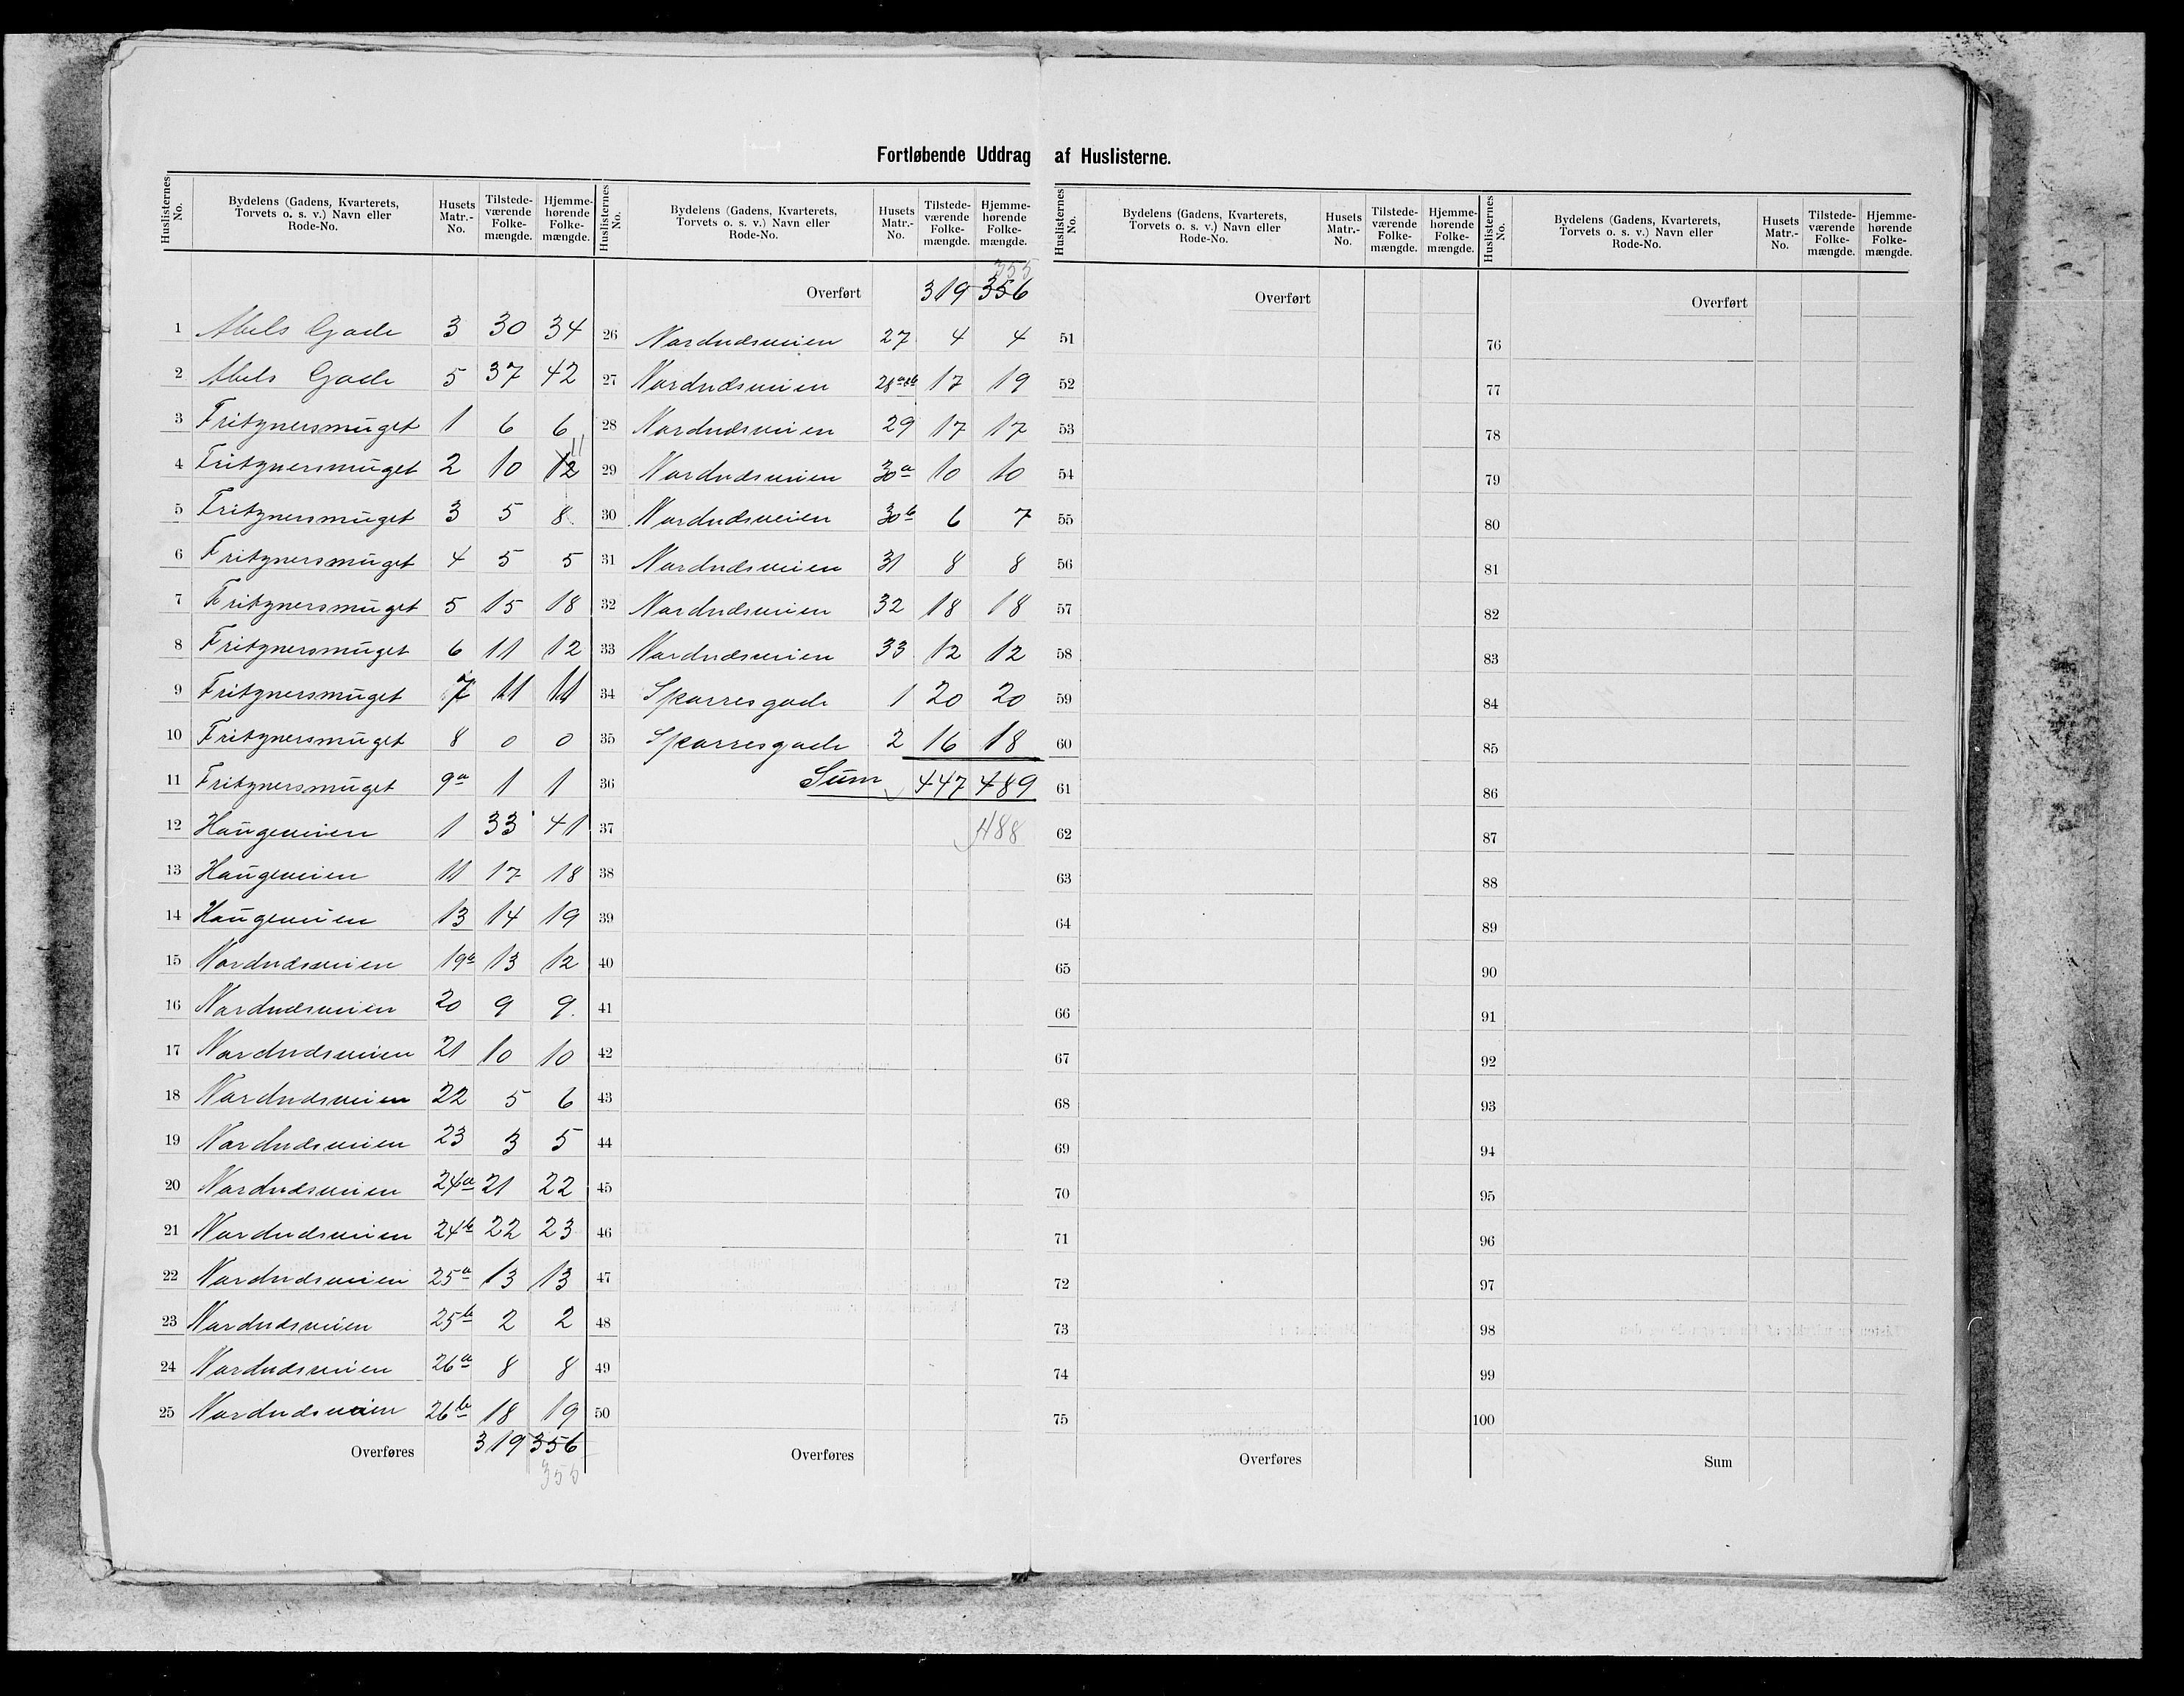 Fortløbende Uddrag af Huslisterne.
Huslisternes No. Bydelens (Gadens, Kvarterets, Torvets o. s. v.) Navn eller Rode-No. Husets Matr.-No. Tilstede-værende Folke-mængde. Hjemme-hørende Folke-mængde.
1 Abels Gade 3 30 34
2 Abels Gade 5 37 42
3 Fritznersmuget 1 6 6
4 Fritznersmuget 2 10 12 11
5 Fritznersmuget 3 5 8
6 Fritznersmuget 4 5 5
7 Fritznersmuget 5 15 18
8 Fritznersmuget 6 11 12
9 Fritznersmuget 7 11 11
10 Fritznersmuget 8 0 0
11 Fritznersmuget 9a 1 1
12 Haugeveien 1 33 41
13 Haugeveien 11 17 18
14 Haugeveien 13 14 19
15 Nordnæsveien 19a 13 12
16 Nordnæsveien 20 9 9
17 Nordnæsveien 21 10 10
18 Nordnæsveien 22 5 6
19 Nordnæsveien 23 3 5
20 Nordnæsveien 24a 21 22
21 Nordnæsveien 24b 22 23
22 Nordnæsveien 25a 13 13
23 Nordnæsveien 25b 2 2
24 Nordnæsveien 26a 8 8
25 Nordnæsveien 26b 18 19
Overføres 319 356
355
Huslisternes No. Bydelens (Gadens, Kvarterets, Torvets o. s. v.) Navn eller Rode-No. Husets Matr.-No. Tilstede-værende Folke-mængde. Hjemme-hørende Folke-mængde.
355
Overført 319 356
26 Nordnæsveien 27 4 4
27 Nordnæsveien 28a&b 17 19
28 Nordnæsveien 29 17 17
29 Nordnæsveien 30a 10 10
30 Nordnæsveien 30b 6 7
31 Nordnæsveien 31 8 8
32 Nordnæsveien 32 18 18
33 Nordnæsveien 33 12 12
34 Sparresgade 1 20 20
35 Sparresgade 2 16 18
36 Sum 447 489
37 488
38
39
40
41
42
43
44
45
46
47
48
49
50
Overføres
Huslisternes No. Bydelens (Gadens, Kvarterets, Torvets o. s. v.) Navn eller Rode-No. Husets Matr.-No. Tilstede-værende Folke-mængde. Hjemme-hørende Folke-mængde.
Overført
51
52
53
54
55
56
57
58
59
60
61
62
63
64
65
66
67
68
69
70
71
72
73
74
75
Overføres
Huslisternes No. Bydelens (Gadens, Kvarterets, Torvets o. s. v.) Navn eller Rode-No. Husets Matr.-No. Tilstede-værende Folke-mængde. Hjemme-hørende Folke-mængde.
Overført
76
77
78
79
80
81
82
83
84
85
86
87
88
89
90
91
92
93
94
95
96
97
98
99
100
Sum